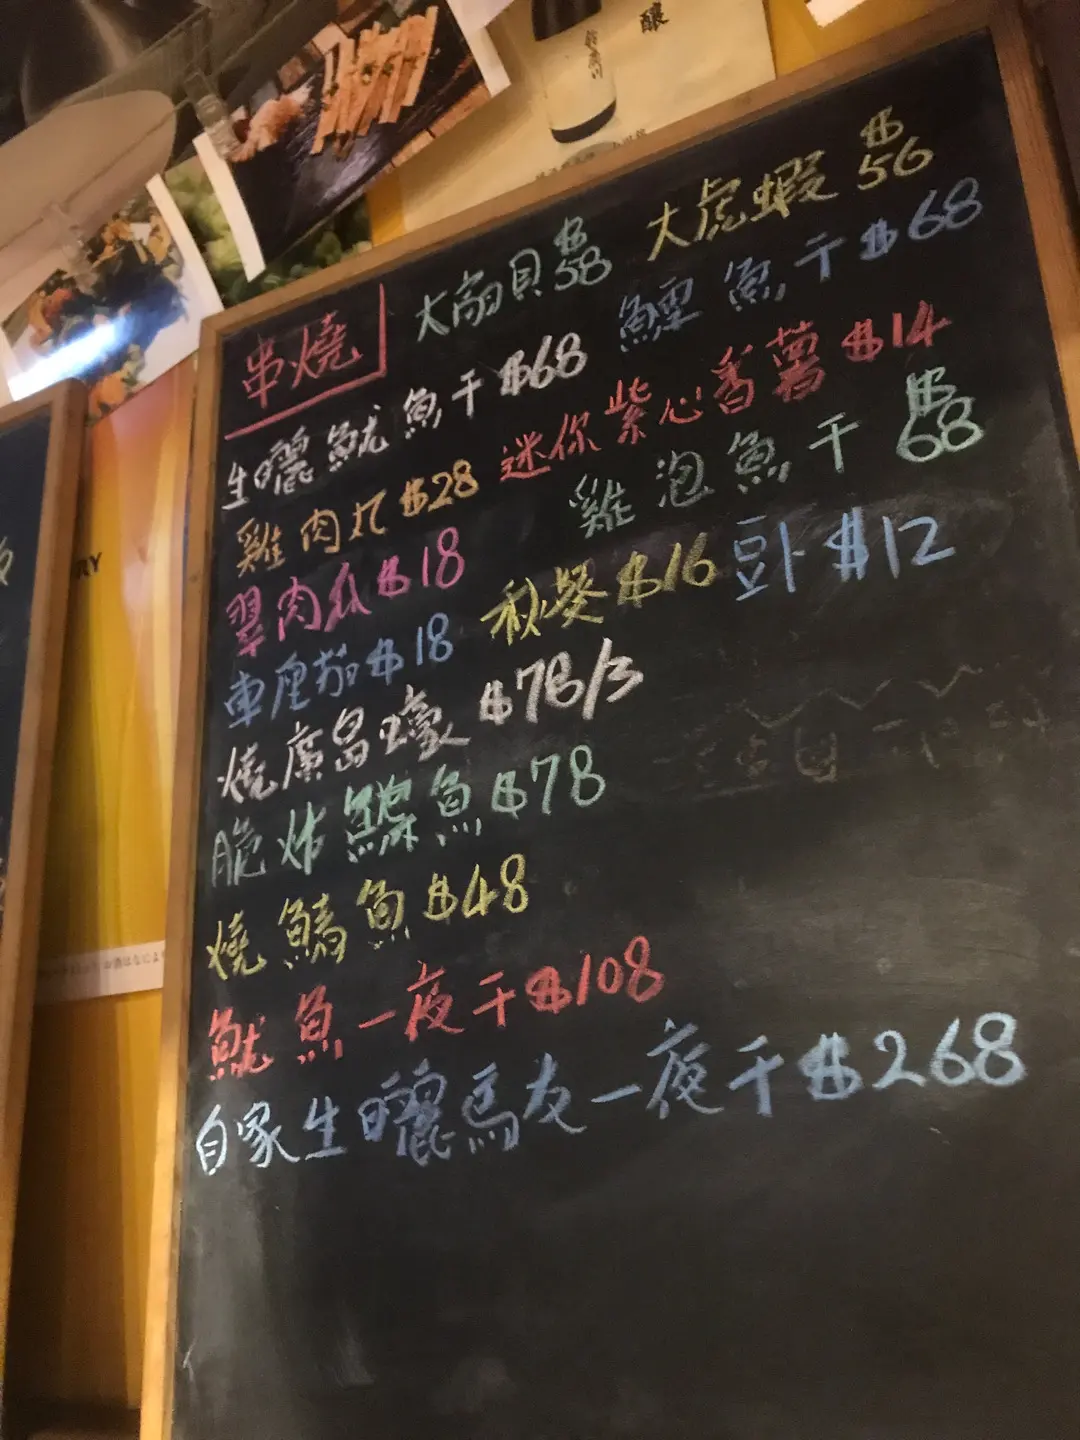 釀
串燒
大扇貝 $58
大虎蝦 $56
生曬魷魚干 $68
鱈魚干 $68
雞肉丸 $28
迷你紫心香薯 $14
翠肉瓜 $18
雞泡魚干 $68
車厘茄 $18
秋葵 $16
豆卜 $12
燒廣島蠔 $78/3
脆炸鰈魚 $78
燒鱚魚 $48
魷魚一夜干 $108
自家生曬馬友一夜干 $268
RY